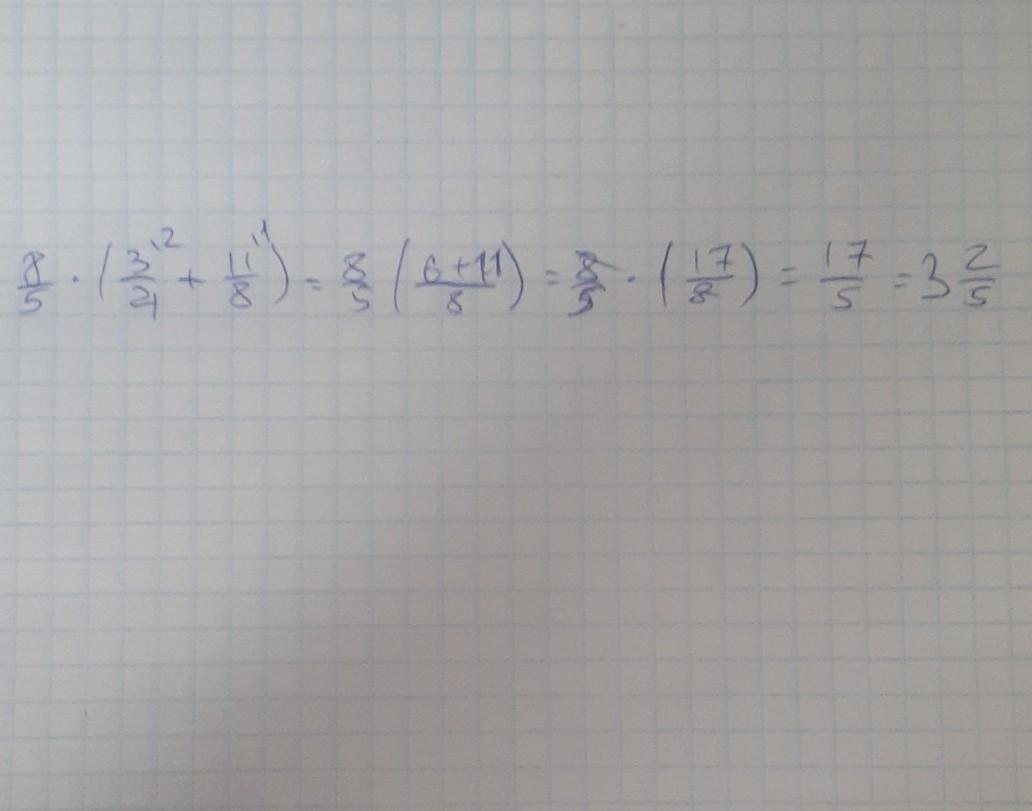 8/5 · (3\2/4 + 11\1/8) = 8/5 (6+11/8) = 8/5 · (17/8) = 17/5 = 3 2/5